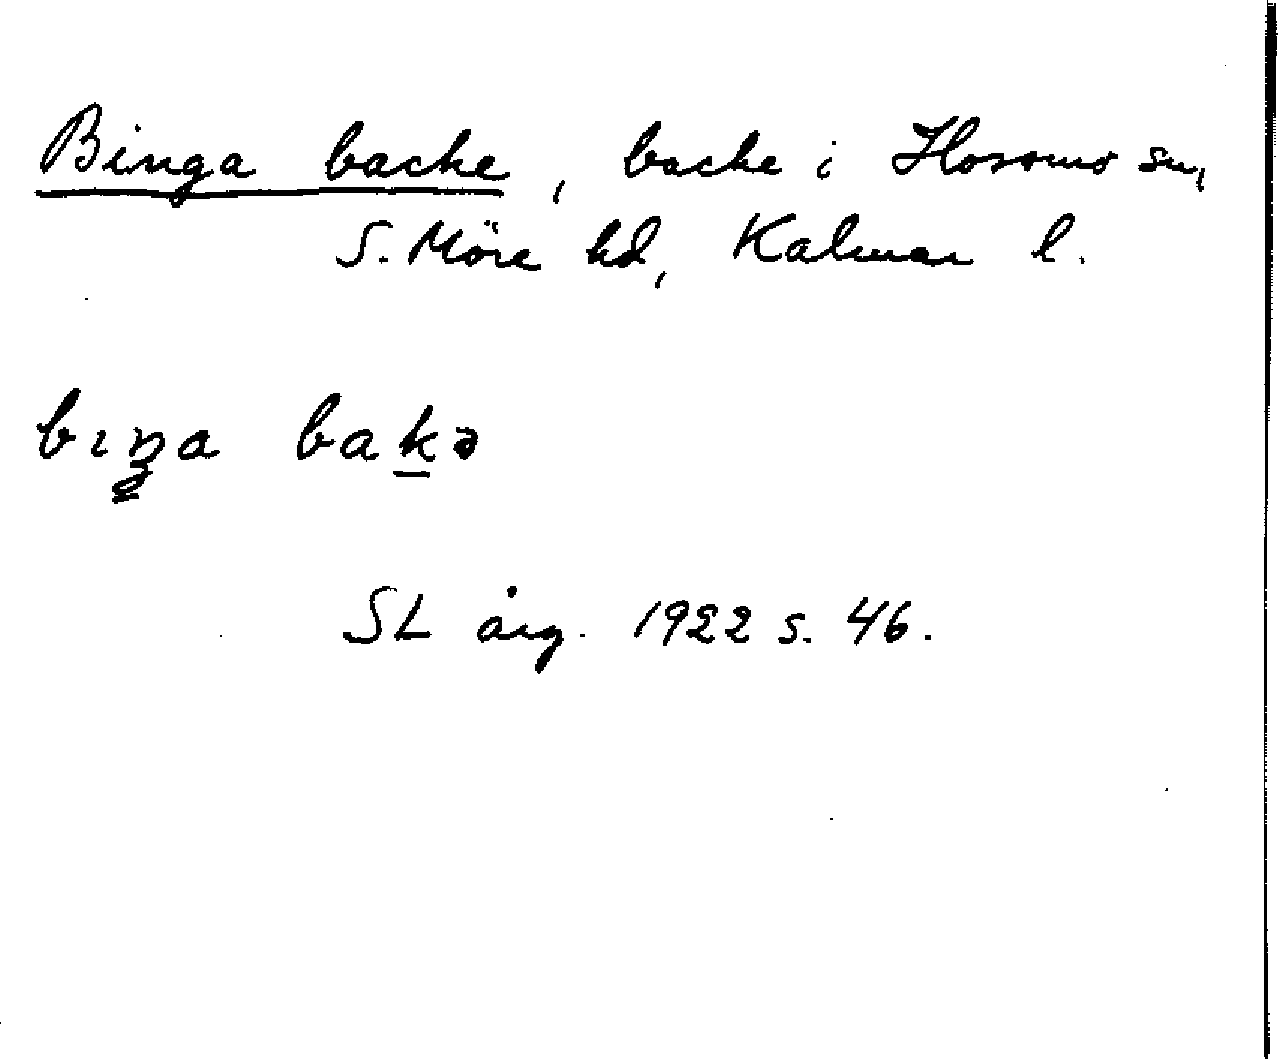 Binga backe, backe i Hossmo sn,
S. Möre hd, Kalmar l.
bıŋa bakə
SL årg. 1922 s. 46.